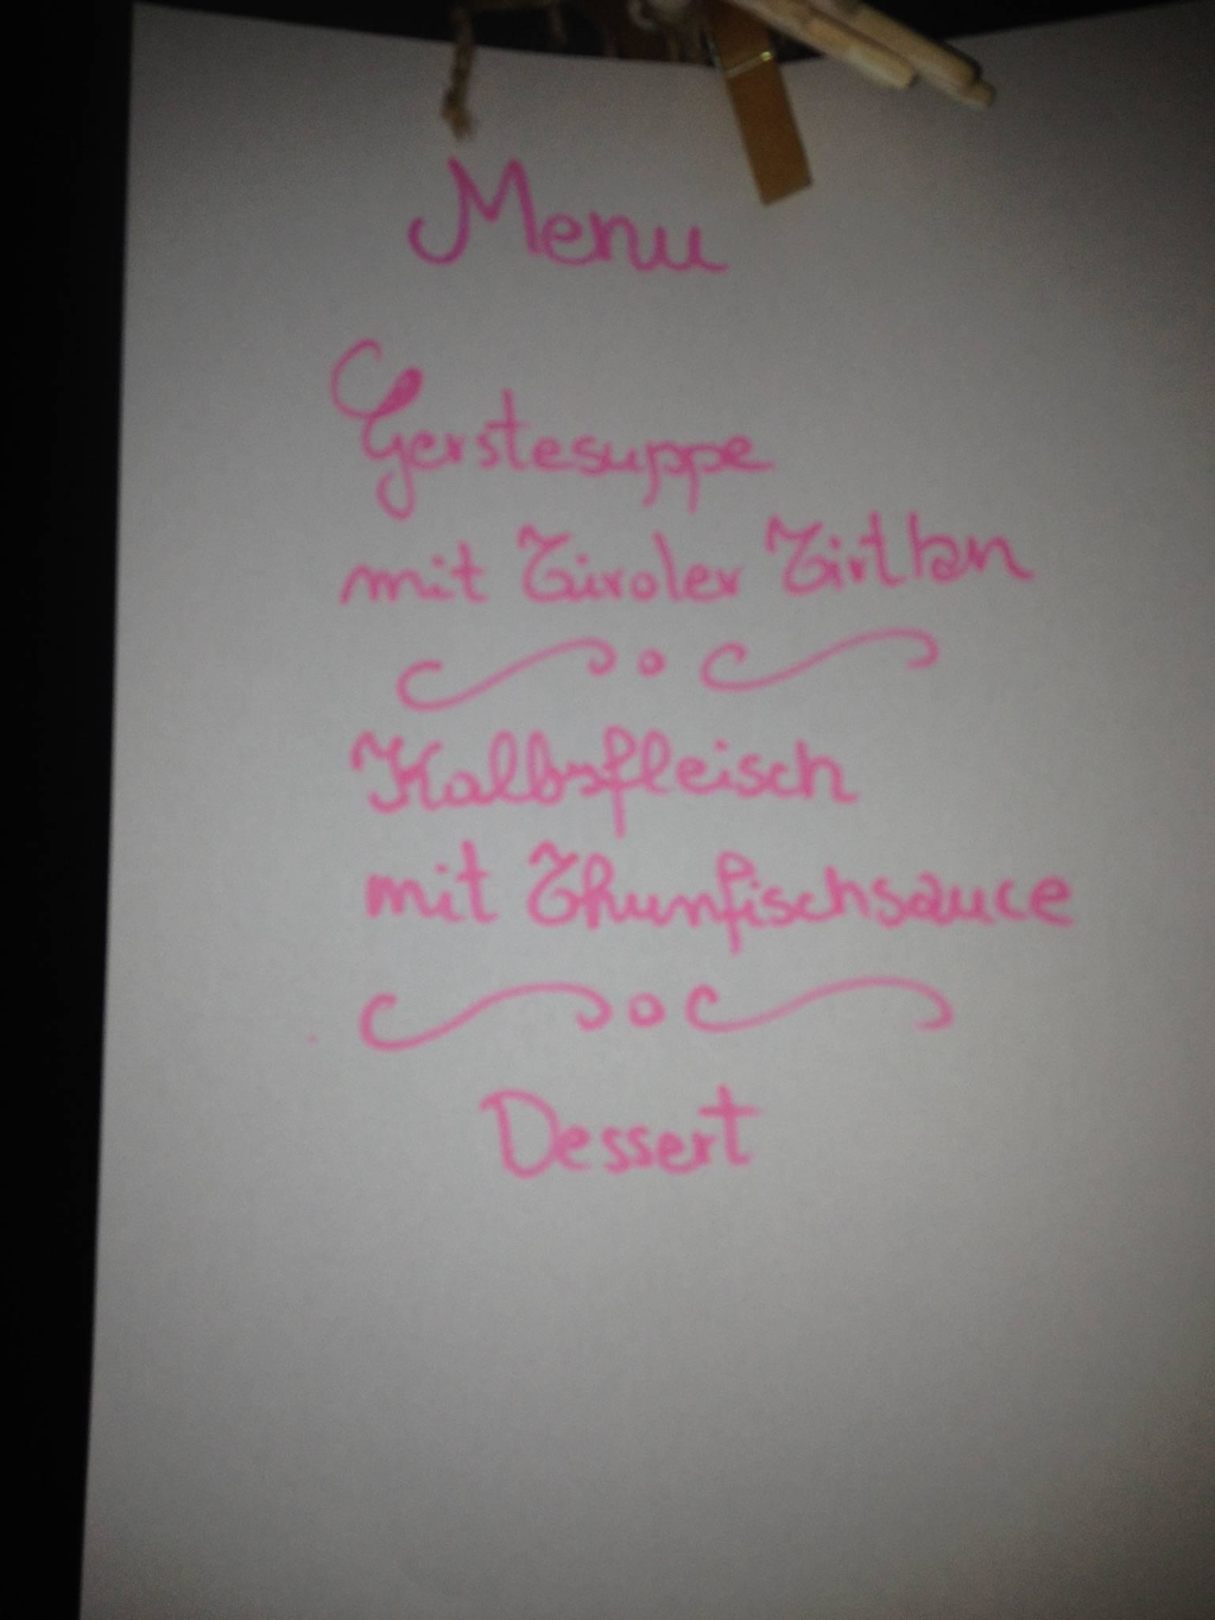 Menu
Gerstesuppe
mit Tiroler Tirtlan
Kalbsfleisch
mit Thunfischsauce
Dessert